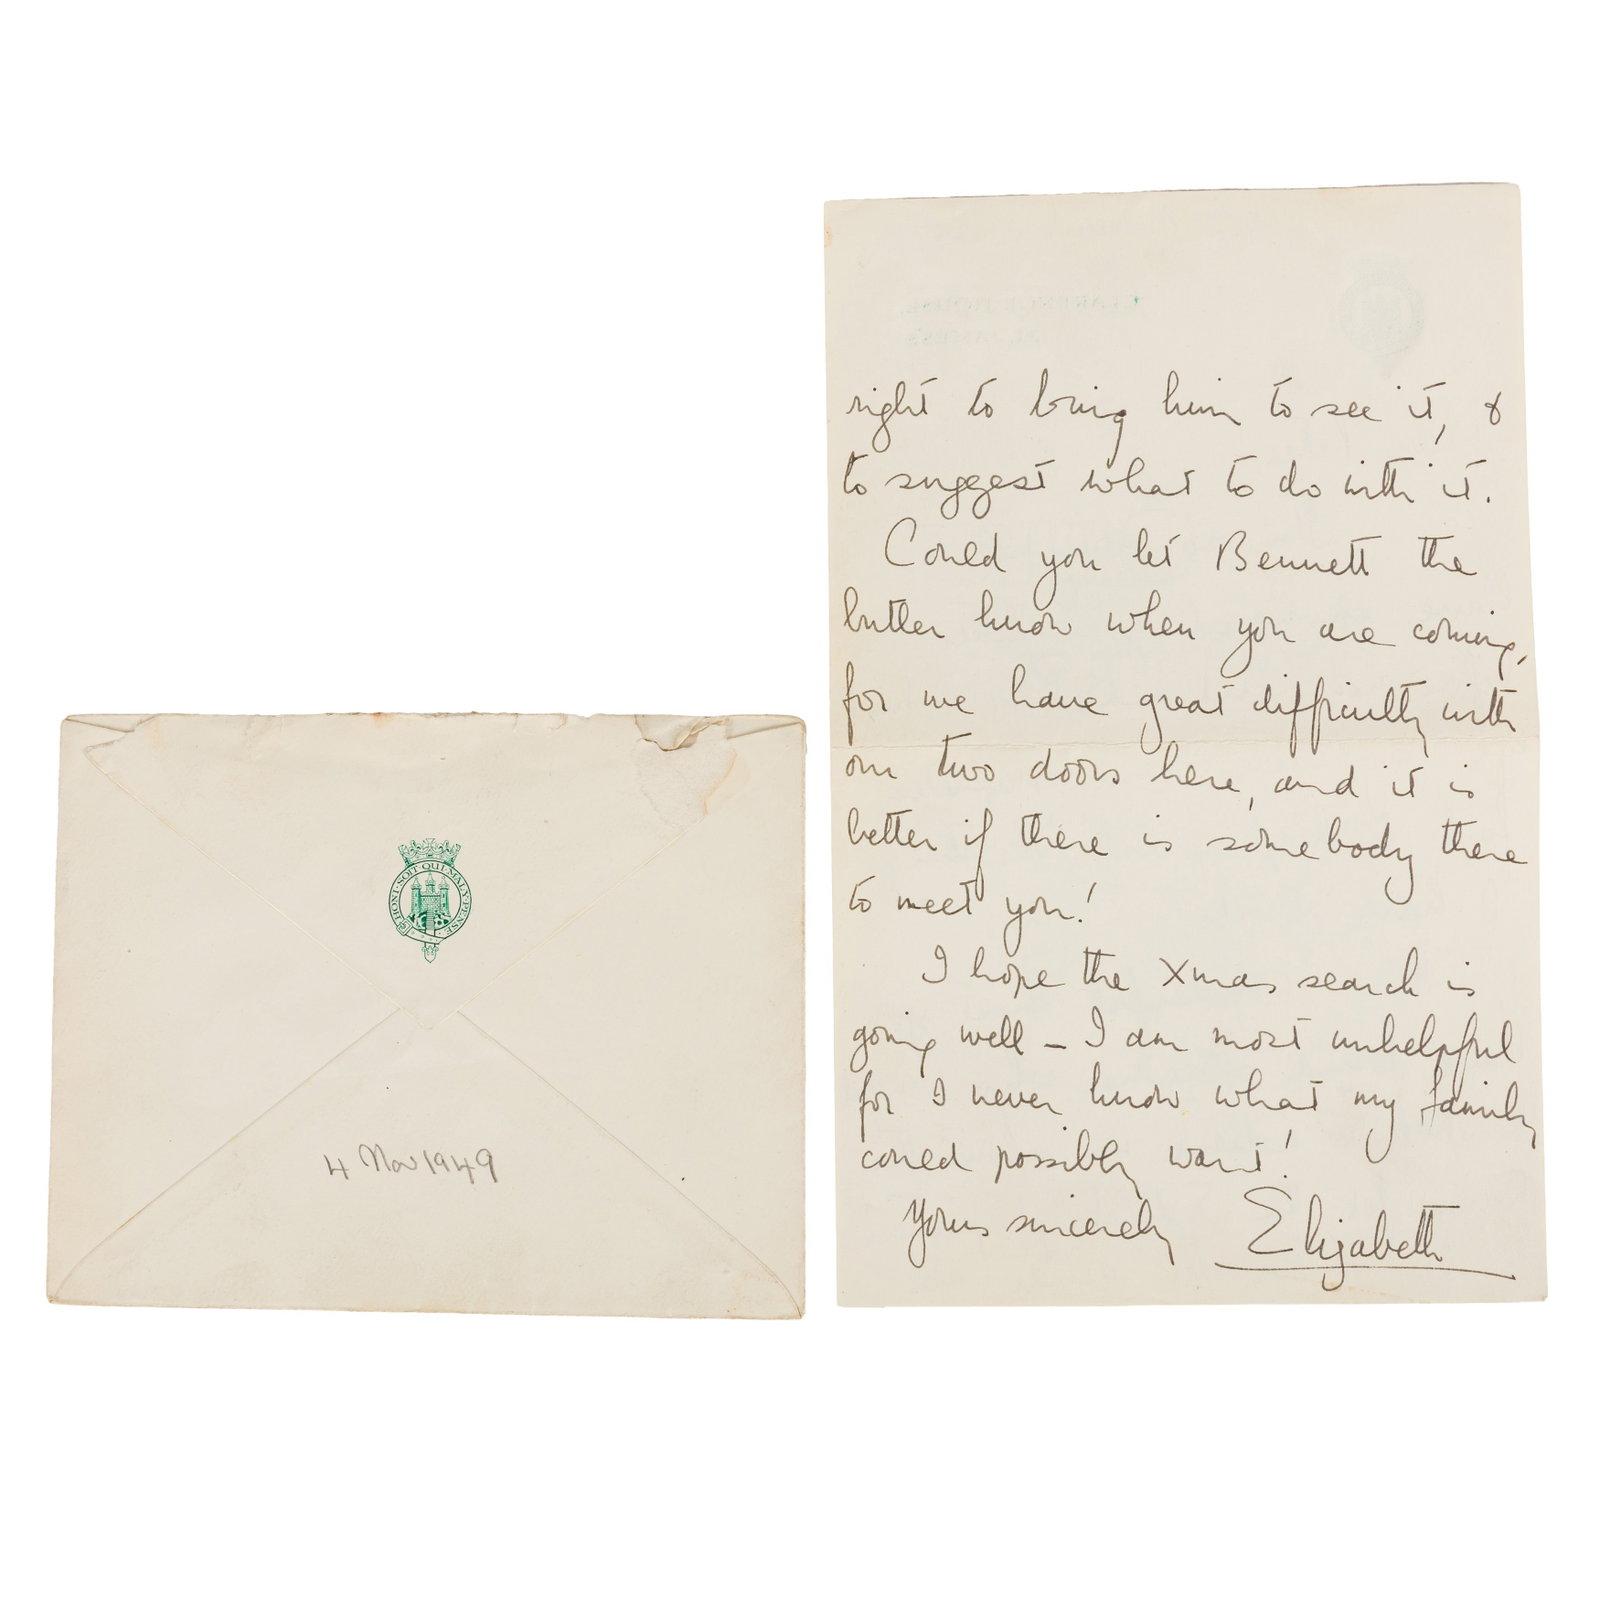 HONI·SOIT·QUI·MAL·Y·PENSE
4 Nov 1949
CLARENCE HOUSE,
ST. JAMES'S
right to bring him to see it, &
to suggest what to do with it.
Could you let Bennett the
butler know when you are coming,
for we have great difficulty with
our two doors here, and it is
better if there is somebody there
to meet you!
I hope the Xmas search is
going well – I am most unhelpful
for I never know what my family
could possibly want!
Yours sincerely Elizabeth